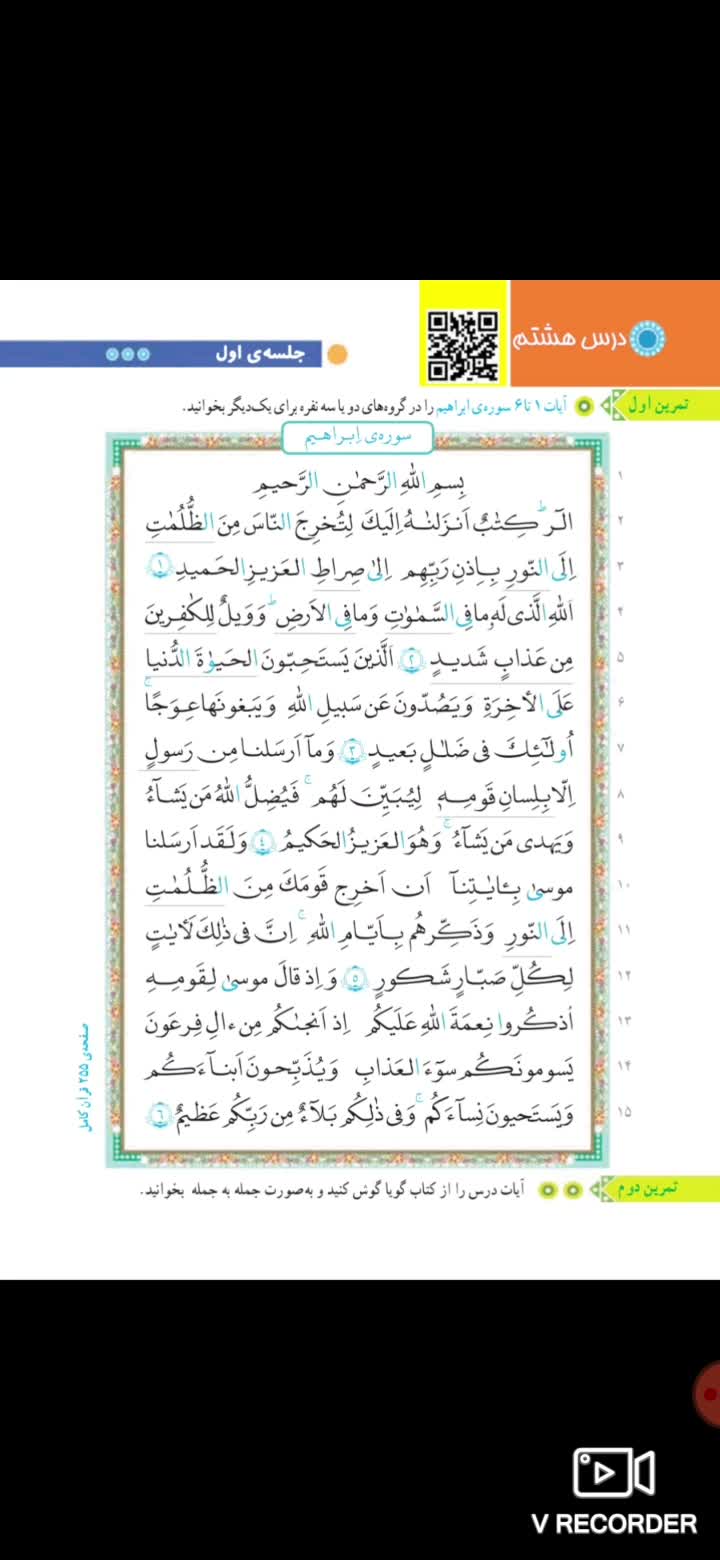 درس هشتم
جلسه‌ی اول
تمرین اول
آیات ۱ تا ۶ سوره‌ی ابراهیم را در گروه‌های دو یا سه نفره برای یک‌دیگر بخوانید.
سوره‌ی اِبراهیم
۱ بِسمِ اللّٰهِ الرَّحمٰنِ الرَّحیمِ
۲ الٓر ۚ کِتٰبٌ اَنزَلنٰهُ اِلَیكَ لِتُخرِجَ النّاسَ مِنَ الظُّلُمٰتِ
۳ اِلَی النّورِ بِاِذنِ رَبِّهِم اِلیٰ صِراطِ العَزیزِ الحَمیدِ ﴿۱﴾
۴ اَللّٰهِ الَّذی لَهُ ما فِی السَّمٰوٰتِ وَ ما فِی الاَرضِ ۗ وَ وَیلٌ لِلکٰفِرینَ
۵ مِن عَذابٍ شَدیدٍ ﴿۲﴾ اَلَّذینَ یَستَحِبّونَ الحَیوٰةَ الدُّنیا
۶ عَلَی الأخِرَةِ وَ یَصُدّونَ عَن سَبیلِ اللّٰهِ وَ یَبغونَها عِوَجًا ۚ
۷ اُولٰٓئِكَ فی ضَلٰلٍ بَعیدٍ ﴿۳﴾ وَ مآ اَرسَلنا مِن رَسولٍ
۸ اِلّا بِلِسانِ قَومِهٖ لِیُبَیِّنَ لَهُم ۚ فَیُضِلُّ اللّٰهُ مَن یَشآءُ
۹ وَ یَهدی مَن یَشآءُ ۚ وَ هُوَ العَزیزُ الحَکیمُ ﴿٤﴾ وَ لَقَد اَرسَلنا
۱۰ موسیٰ بِـٔایٰتِنآ اَن اَخرِج قَومَكَ مِنَ الظُّلُمٰتِ
۱۱ اِلَی النّورِ وَ ذَکِّرهُم بِاَیّامِ اللّٰهِ ۚ اِنَّ فی ذٰلِكَ لَأیٰتٍ
۱۲ لِکُلِّ صَبّارٍ شَکورٍ ﴿۵﴾ وَ اِذ قالَ موسیٰ لِقَومِهِ
۱۳ اُذکُروا نِعمَةَ اللّٰهِ عَلَیکُم اِذ اَنجٰکُم مِن ءالِ فِرعَونَ
۱۴ یَسومونَکُم سوٓءَ العَذابِ وَ یُذَبِّحونَ اَبنآءَکُم
۱۵ وَ یَستَحیونَ نِسآءَکُم ۚ وَ فی ذٰلِکُم بَلآءٌ مِن رَبِّکُم عَظیمٌ ﴿٦﴾
صفحه‌ی ۲۵۵ قرآن کامل
تمرین دوم
آیات درس را از کتاب گویا گوش کنید و به‌صورت جمله به جمله بخوانید.
V RECORDER